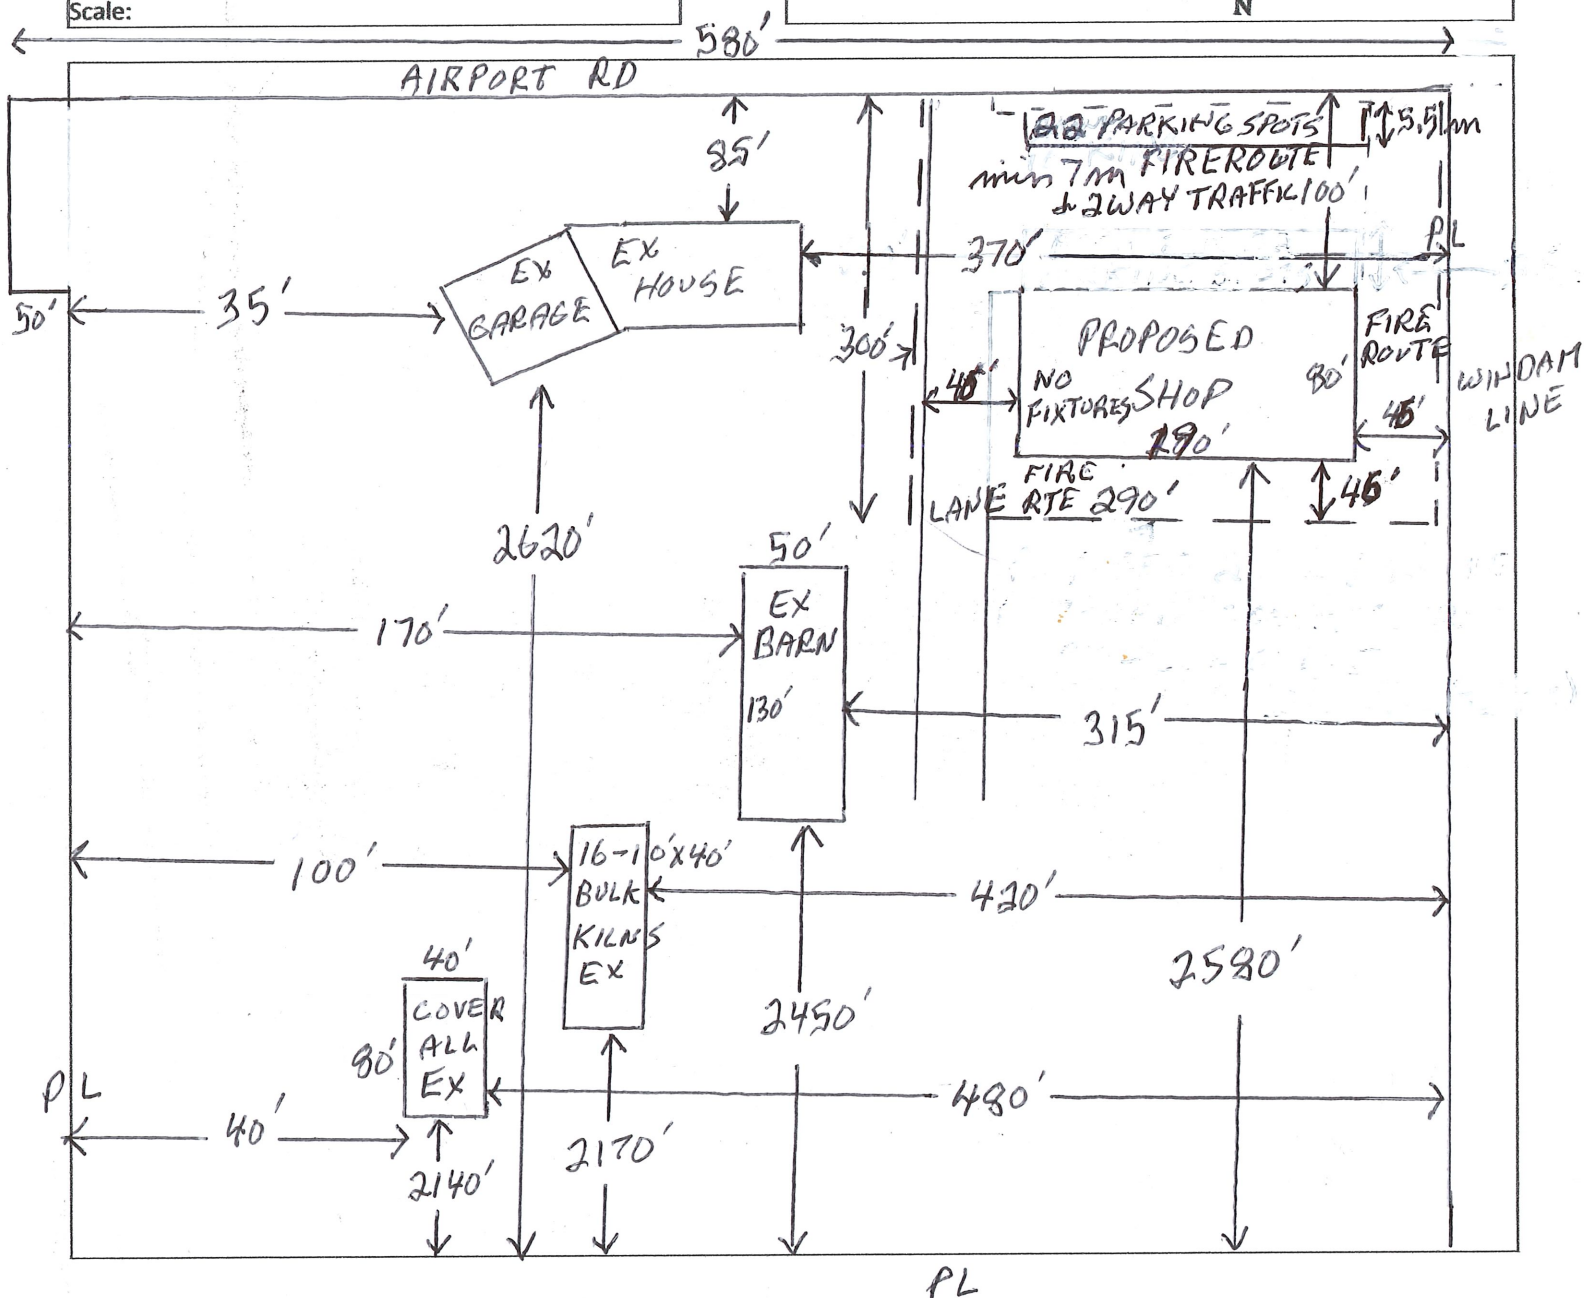 Scale:
N
580'
AIRPORT RD
22 PARKING SPOTS
5.5 m
min 7m FIREROUTE
& 2WAY TRAFFIC
100'
85'
PL
370'
EX
HOUSE
EX
GARAGE
50'
35'
300'
PROPOSED
SHOP
NO
FIXTURES
80'
FIRE
ROUTE
WINDAM
LINE
45'
45'
FIRE
LANE RTE 290'
45'
2620'
50'
EX
BARN
130'
170'
315'
100'
16-10'X40'
BULK
KILNS
EX
420'
2580'
2450'
40'
COVER
ALL
EX
80'
480'
PL
40'
2140'
2170'
PL